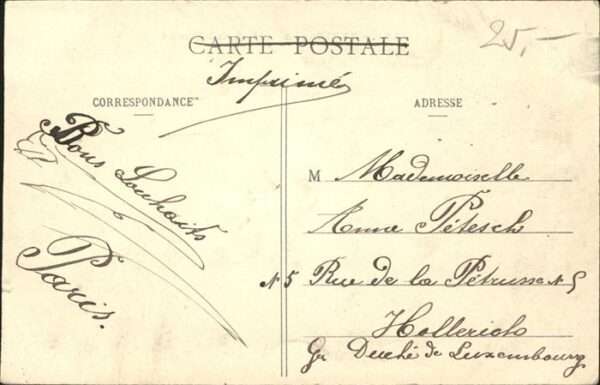 CARTE POSTALE
25,-
Imprimé
CORRESPONDANCE
Bons Souhaits
Paris.
ADRESSE
M Mademoiselle
Anna Pétesch
N 5 Rue de la Pétrusse N 5
Hollerich
Gr Duché de Luxembourg